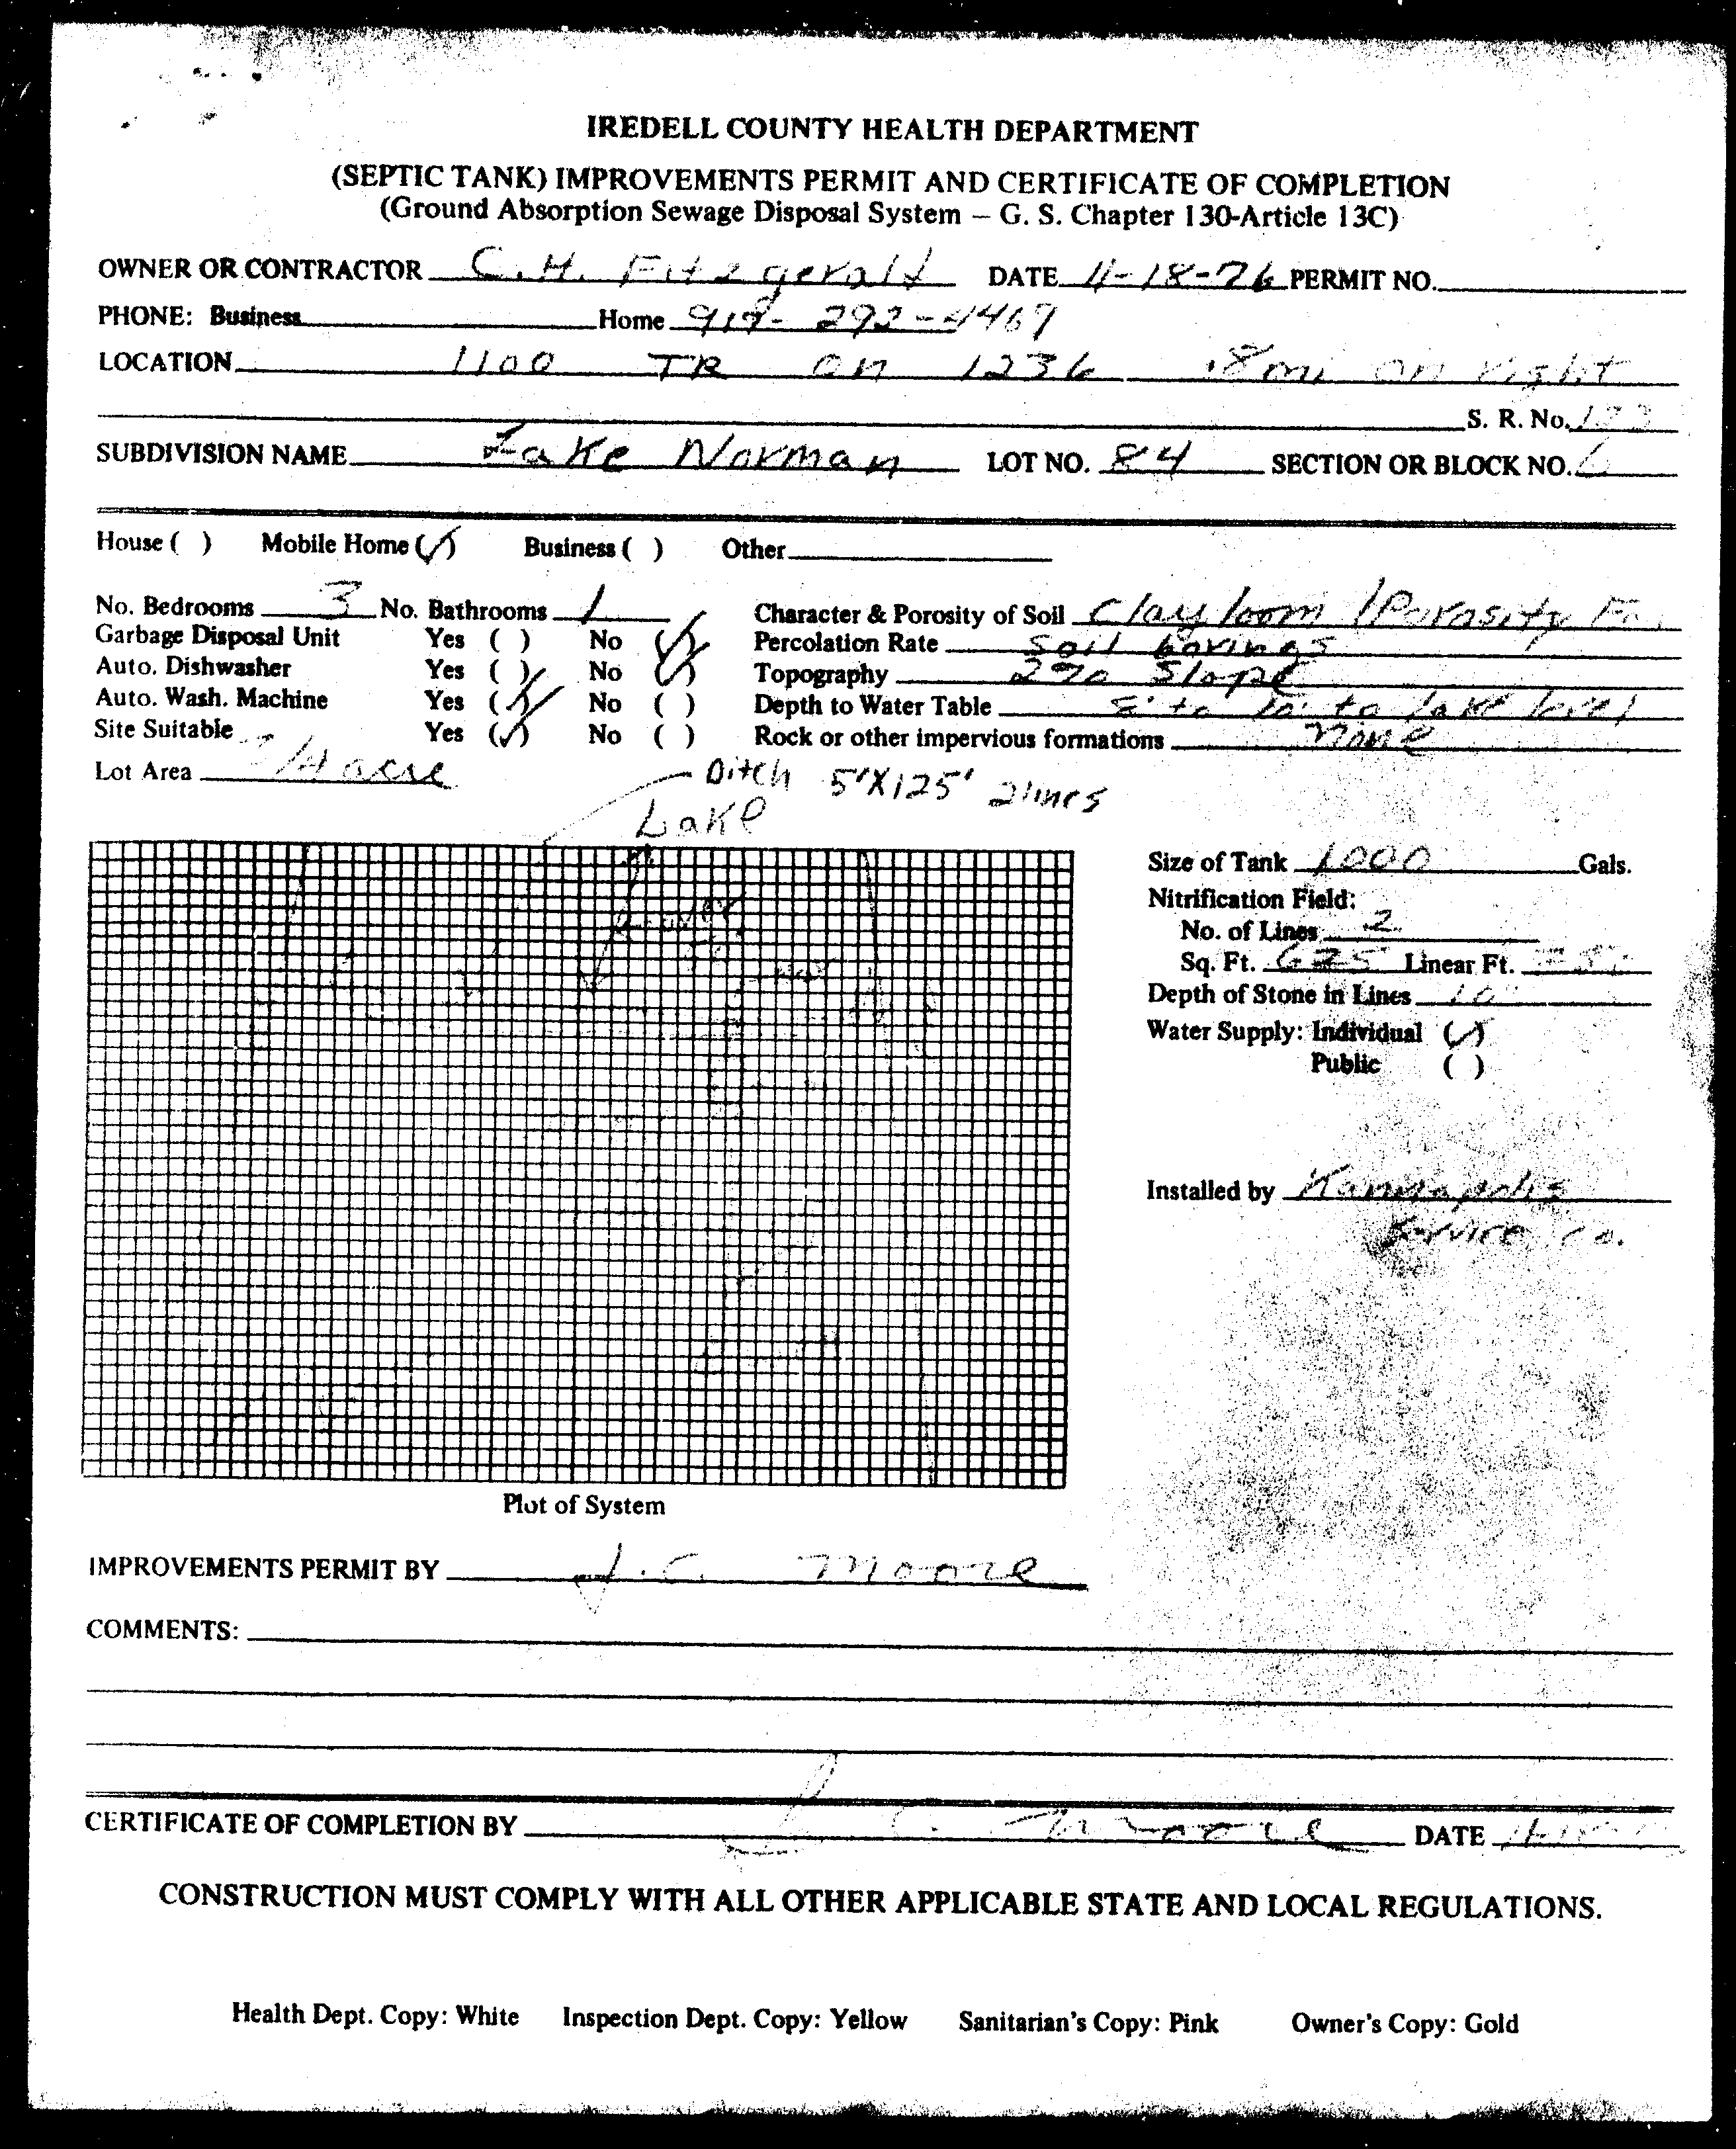 IREDELL COUNTY HEALTH DEPARTMENT
(SEPTIC TANK) IMPROVEMENTS PERMIT AND CERTIFICATE OF COMPLETION
(Ground Absorption Sewage Disposal System – G. S. Chapter 130-Article 13C)
OWNER OR CONTRACTOR C.H. Fitzgerald DATE 11-18-76 PERMIT NO.
PHONE: Business Home 919-292-4469
LOCATION 1100 TR on 1236 .8 mi on right
S. R. No.
SUBDIVISION NAME Lake Norman LOT NO. 84 SECTION OR BLOCK NO. 6
House ( ) Mobile Home (✓) Business ( ) Other
No. Bedrooms 3 No. Bathrooms 1 Character & Porosity of Soil Clay loom / Porosity
Garbage Disposal Unit Yes ( ) No (✓) Percolation Rate Soil borings
Auto. Dishwasher Yes ( ) No (✓) Topography 2% Slope
Auto. Wash. Machine Yes (✓) No ( ) Depth to Water Table to 10' to lake level
Site Suitable Yes (✓) No ( ) Rock or other impervious formations none
Lot Area acre
Ditch 5'X125' 2 lines
Lake
Size of Tank 1000 Gals.
Nitrification Field:
No. of Lines 2
Sq. Ft. 625 Linear Ft.
Depth of Stone in Lines 10"
Water Supply: Individual (✓)
Public ( )
Installed by Kannapolis
Service Co.
Plot of System
IMPROVEMENTS PERMIT BY J. C. Moore
COMMENTS:
CERTIFICATE OF COMPLETION BY J. C. Moore DATE
CONSTRUCTION MUST COMPLY WITH ALL OTHER APPLICABLE STATE AND LOCAL REGULATIONS.
Health Dept. Copy: White Inspection Dept. Copy: Yellow Sanitarian's Copy: Pink Owner's Copy: Gold